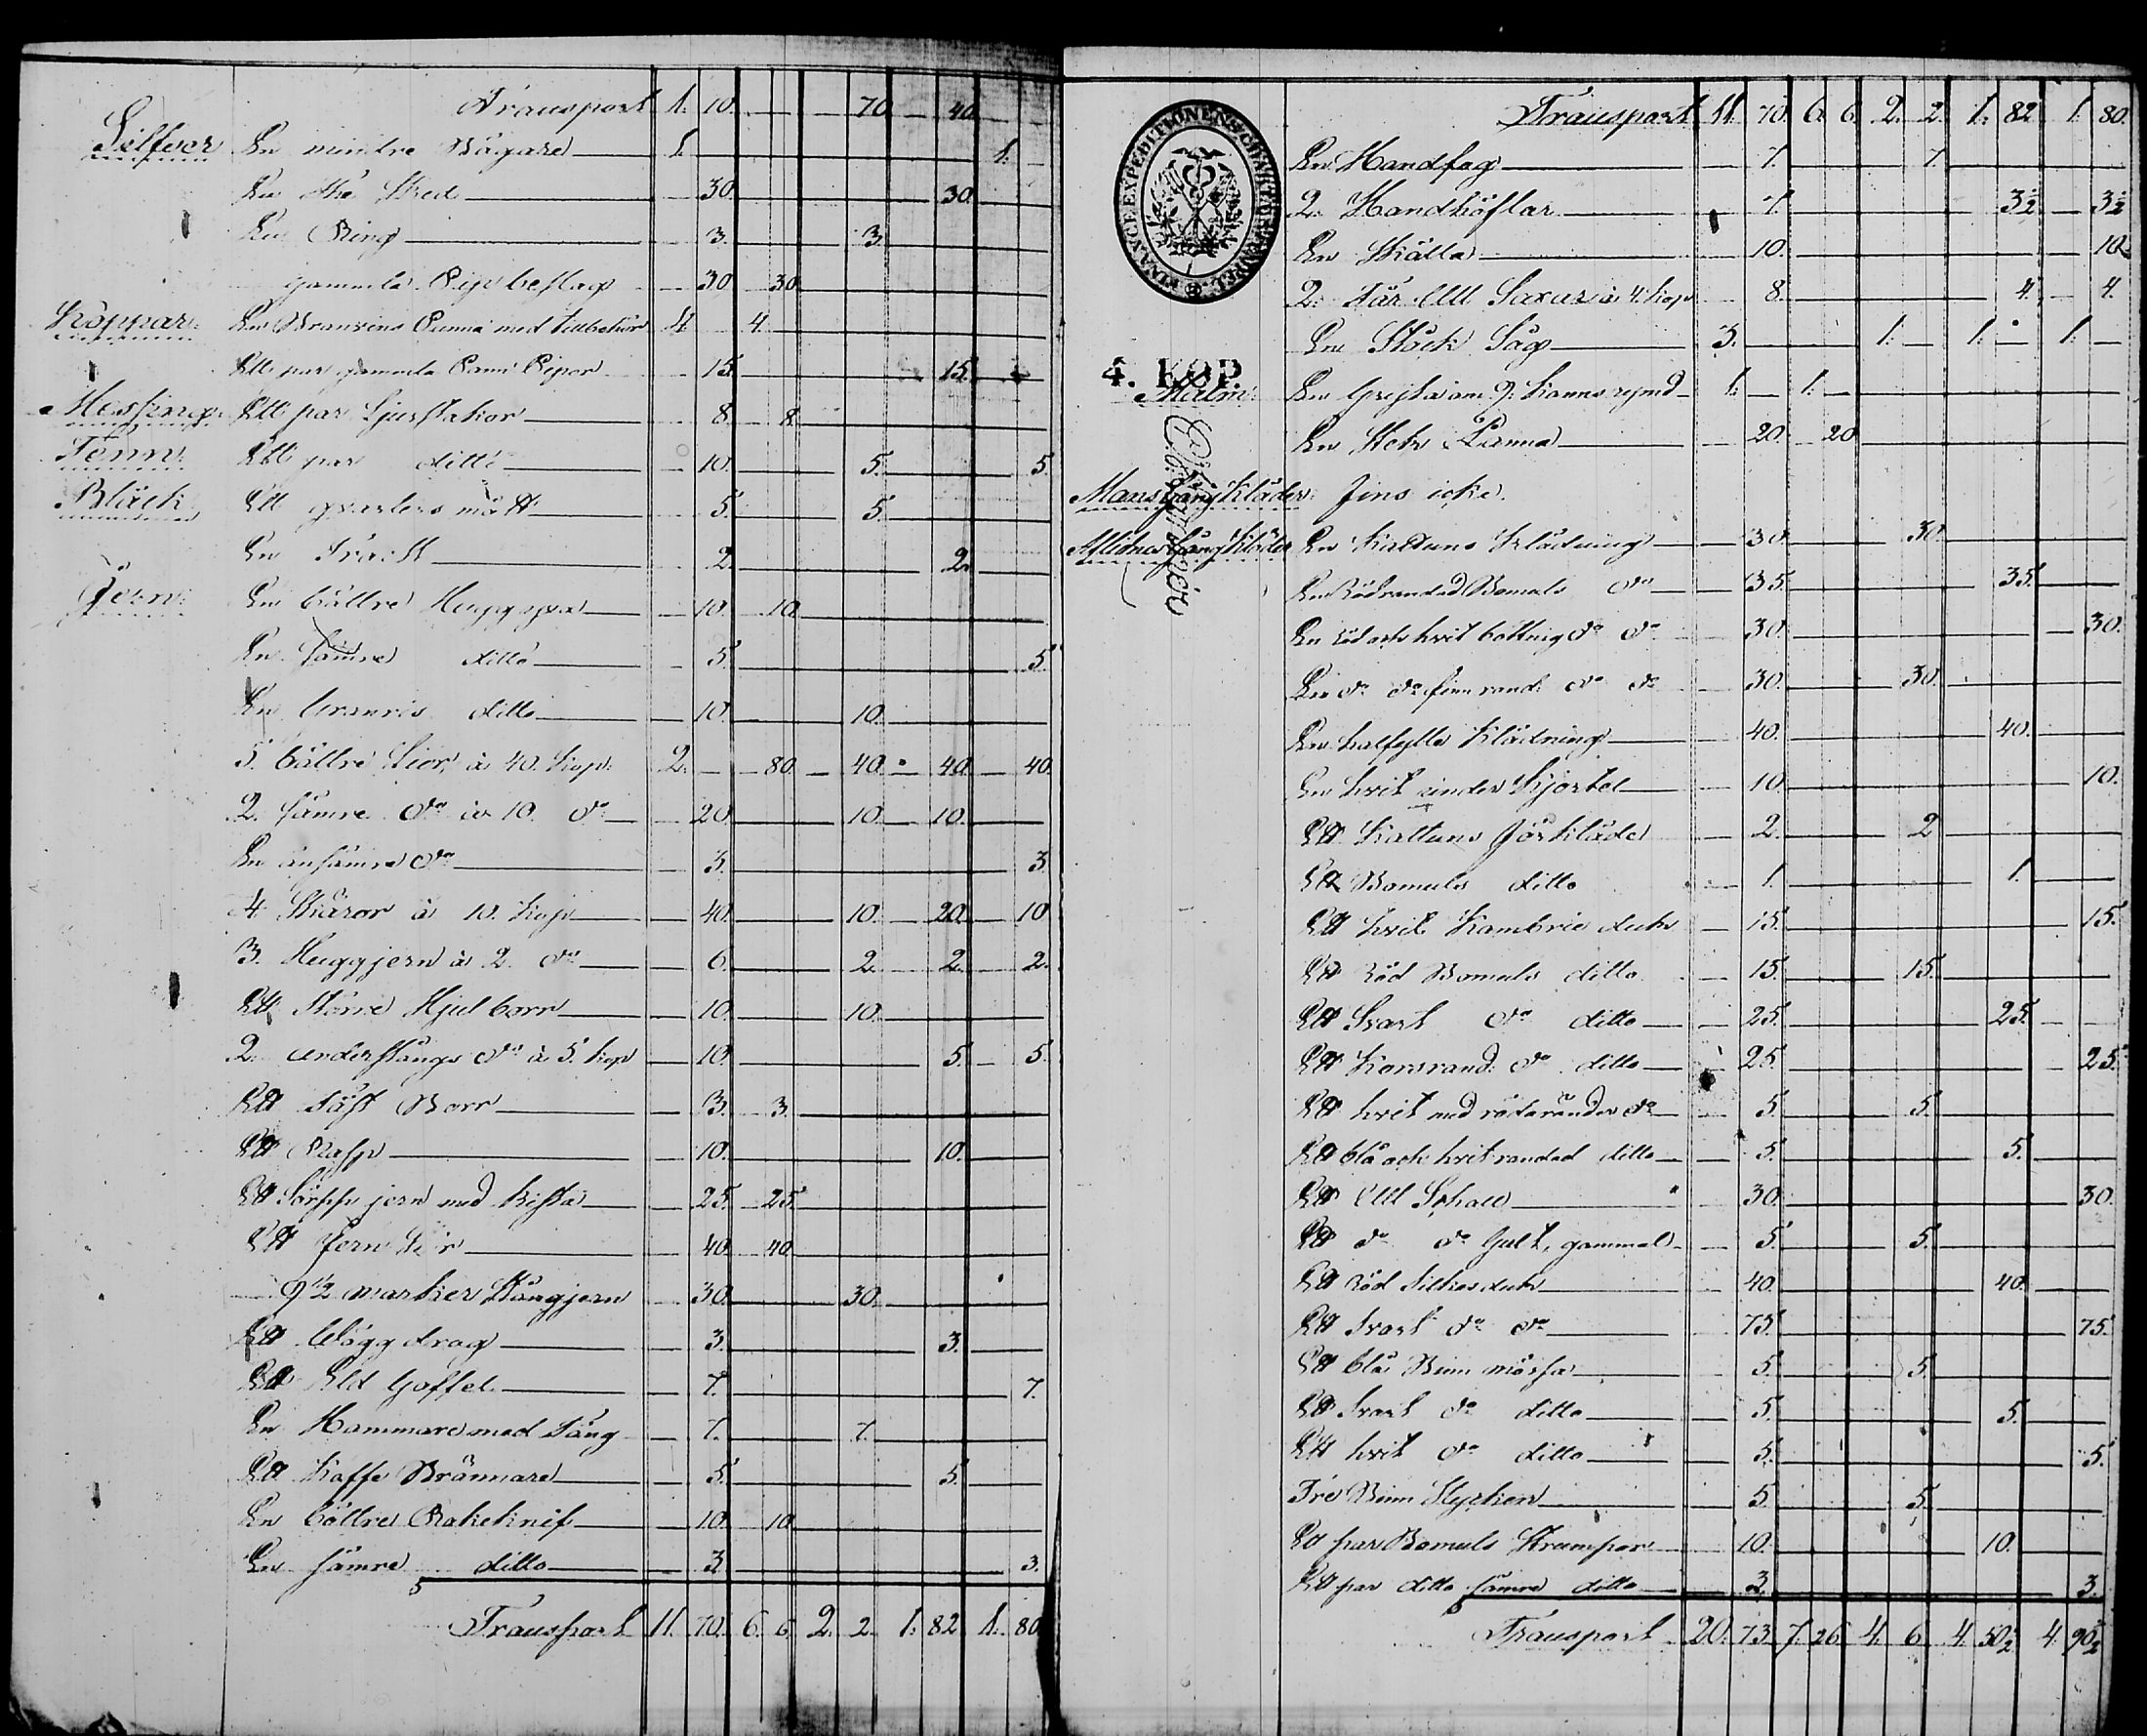 Transport 1. 10. 70 40
Silfver En mindre Bägare 1. 1.
En The Sked 30. 30
En Ring 3. 3.
gammla Pip beslag 30 30
Koppar. En Brännvins Panna med tillbehör 4. 4.
Ett par gammla Pann Pipor 15. 15.
Messing. Ett par Ljusstakor 8. 8.
Tenn. Ett par ditto 10. 5. 5.
Bläck Ett qvarters mått 5. 5.
En Tratt 2. 2.
Jern. En bättre Huggyxa 10. 10.
En sämre ditto 5. 5.
En ditto 10. 10.
5. bättre Lior, à 40. Kop. 2. 80. 40. 40. 40.
2. sämre do à 10. do 20. 10. 10.
En änsämre do 3. 3.
4 Skäror à 10. Kop 40. 10. 20. 10
3. Huggjern à 2. do 6. 2. 2. 2.
Ett Större Hjul borr 10. 10.
2. do à 5. Kop 10. 5. 5.
Ett Borr 3. 3.
Ett Rasp 10. 10.
Ett jern med 25. 25.
Ett Jern Stör 40. 40
9 1/2 marker Stångjern 30. 30.
Ett drag 3. 3.
En Eld Gaffel 7. 7.
En Hammare med Tång 7. 7.
En Kaffe Brännare 5. 5.
En bättre Rakeknif 10. 10
En sämre ditto 3 3.
Transport 11. 70. 6. 6. 2. 2. 1. 82. 1. 80
FINANCE EXPEDITIONENS CHARTÆ STEMPEL
4. KOP.
Transport 11. 70. 6. 6. 2. 2. 1. 82. 1. 80.
En Handsåg 7. 7.
2. Handhöflar 7. 3½ 3½
En Skälla 10. 10.
2. Får Ull Saxar à 4. Kop 8. 4. 4.
En Stock Såg 3. 1. 1. 1.
Malm. En Gryta om 9. Kanns rymd 1. 1.
En Stek Panna 20. 20
Mans Gång Kläder. Fins icke.
Aflidnas Gång Kläder En Kattuns Klädning 30. 30.
En Rödrandad Bomuls do 35. 35.
En röd och hvit bottnig do do 30. 30.
En do do finrand. do do 30. 30.
En halfylle Klädning 40. 40.
En hvit under Kjortel 10. 10.
Ett Kattuns Förkläde 2. 2
Ett Bomuls ditto 1. 1.
Ett hvit Kambric duk 15. 15.
Ett röd Bomuls ditto 15. 15.
Ett Svart do ditto 25. 25.
Ett Korsrand. do ditto 25. 25.
Ett hvit med röda ränder do 5. 5.
Ett blå och hvit randad ditto 5. 5.
Ett Ull Schale 30. 30.
Ett do do Gult, gammal 5. 5.
Ett röd Silkes duk 40. 40.
Ett Svart do do 75. 75.
Ett blå Binn mössa 5. 5.
Ett Svart do ditto 5. 5.
Ett hvit do ditto 5. 5.
Tre Binn Stycken 5. 5.
Ett par Bomuls Strumpor 10. 10.
Ett par ditto sämre ditto 3. 3.
Transport 20. 73. 7. 26 4. 6. 4. 50½ 4. 90½